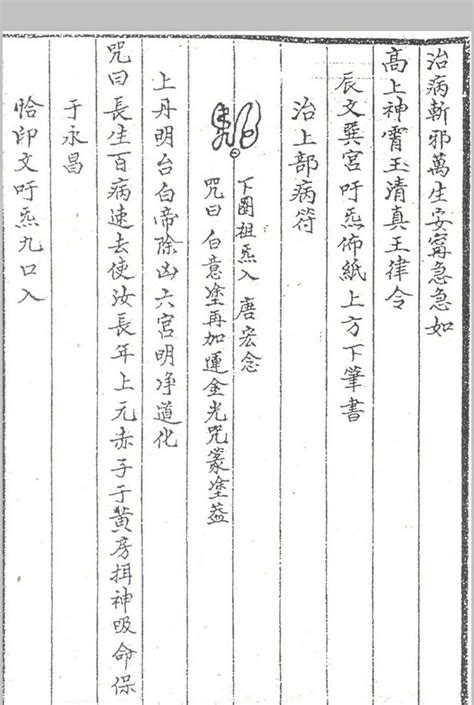 治病斬邪萬生安寗急急如
高上神霄玉清真王律令
辰文巽宮吁炁佈紙上方下筆書
治上部病符
下圈祖炁入 唐宏念
咒曰 白意塗再加運金光咒篆塗蓋
上丹明台白帝除凶六宮明净道化
咒曰長生百病速去使汝長年上元赤子于黃房揖神吸命保
于永昌
恰印文吁炁九口入